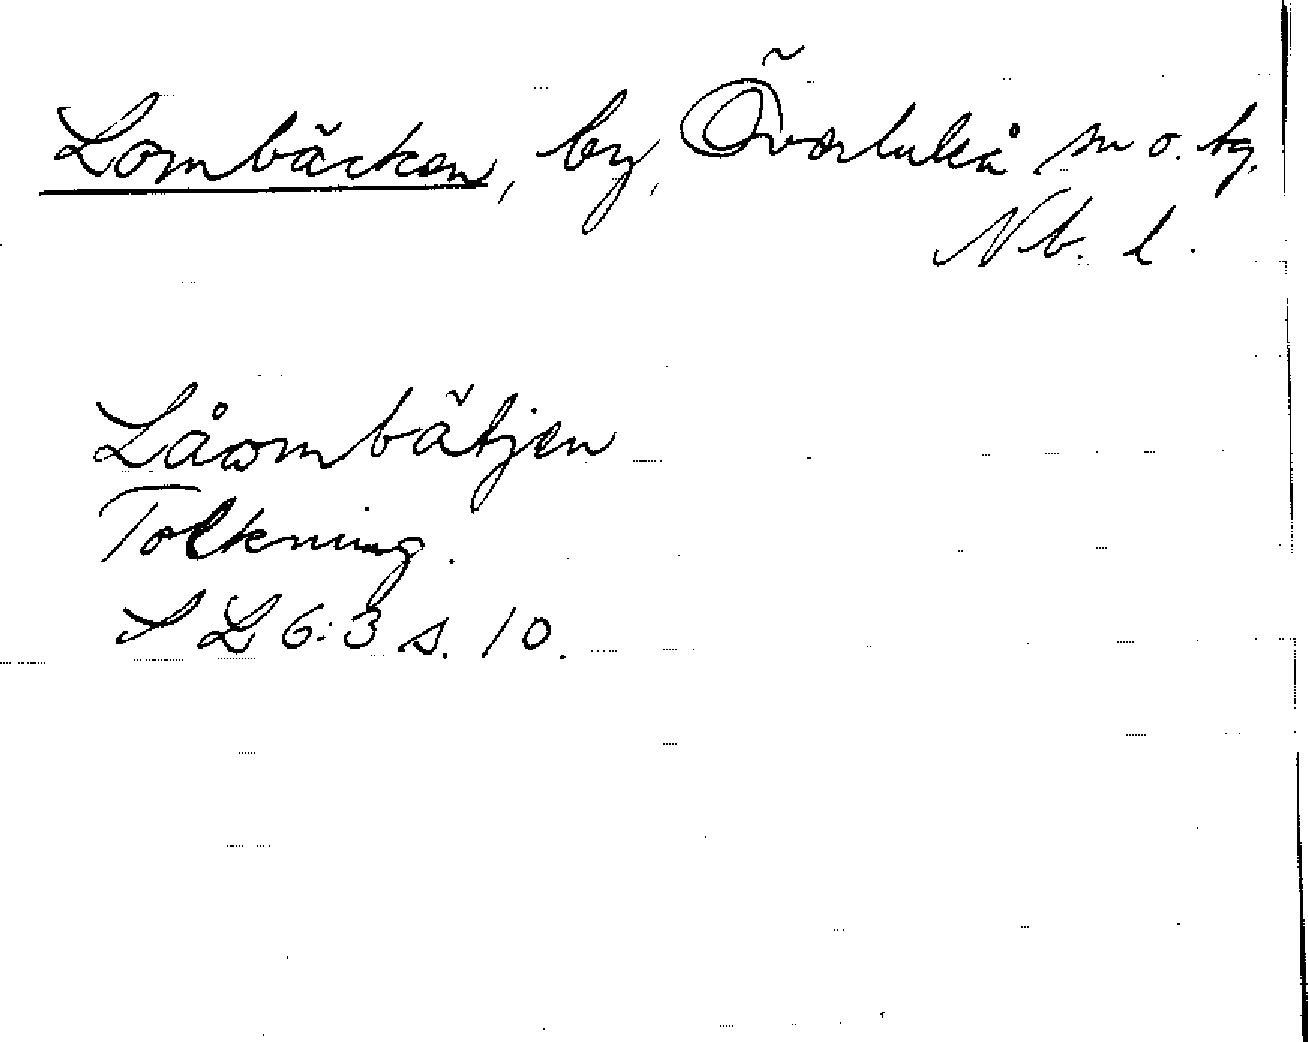 Lombäcken, by, Överluleå sn o. tg.
Nb. l.
Låombätjen
Tolkning.
SL 6:3 s. 10.